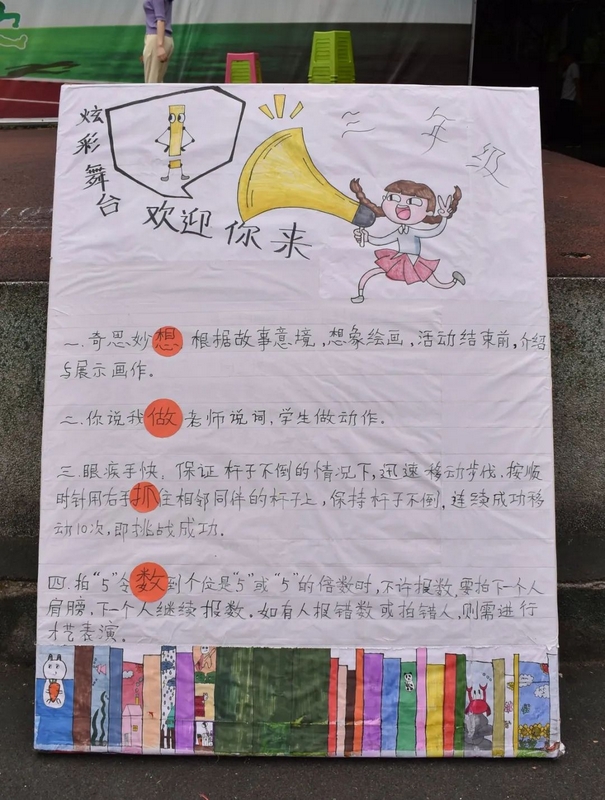 炫彩舞台
欢迎你来
三年级
一.奇思妙想 根据故事意境,想象绘画,活动结束前,介绍
与展示画作。
二.你说我做 老师说词,学生做动作。
三.眼疾手快。保证杆子不倒的情况下,迅速移动步伐.按顺
时针用右手抓住相邻同伴的杆子上,保持杆子不倒,连续成功移
动10次,即挑战成功.
四.拍“5”令 数到个位是“5”或“5”的倍数时,不许报数,要拍下一个人
肩膀,下一个人继续报数.如有人报错数或拍错人,则需进行
才艺表演。